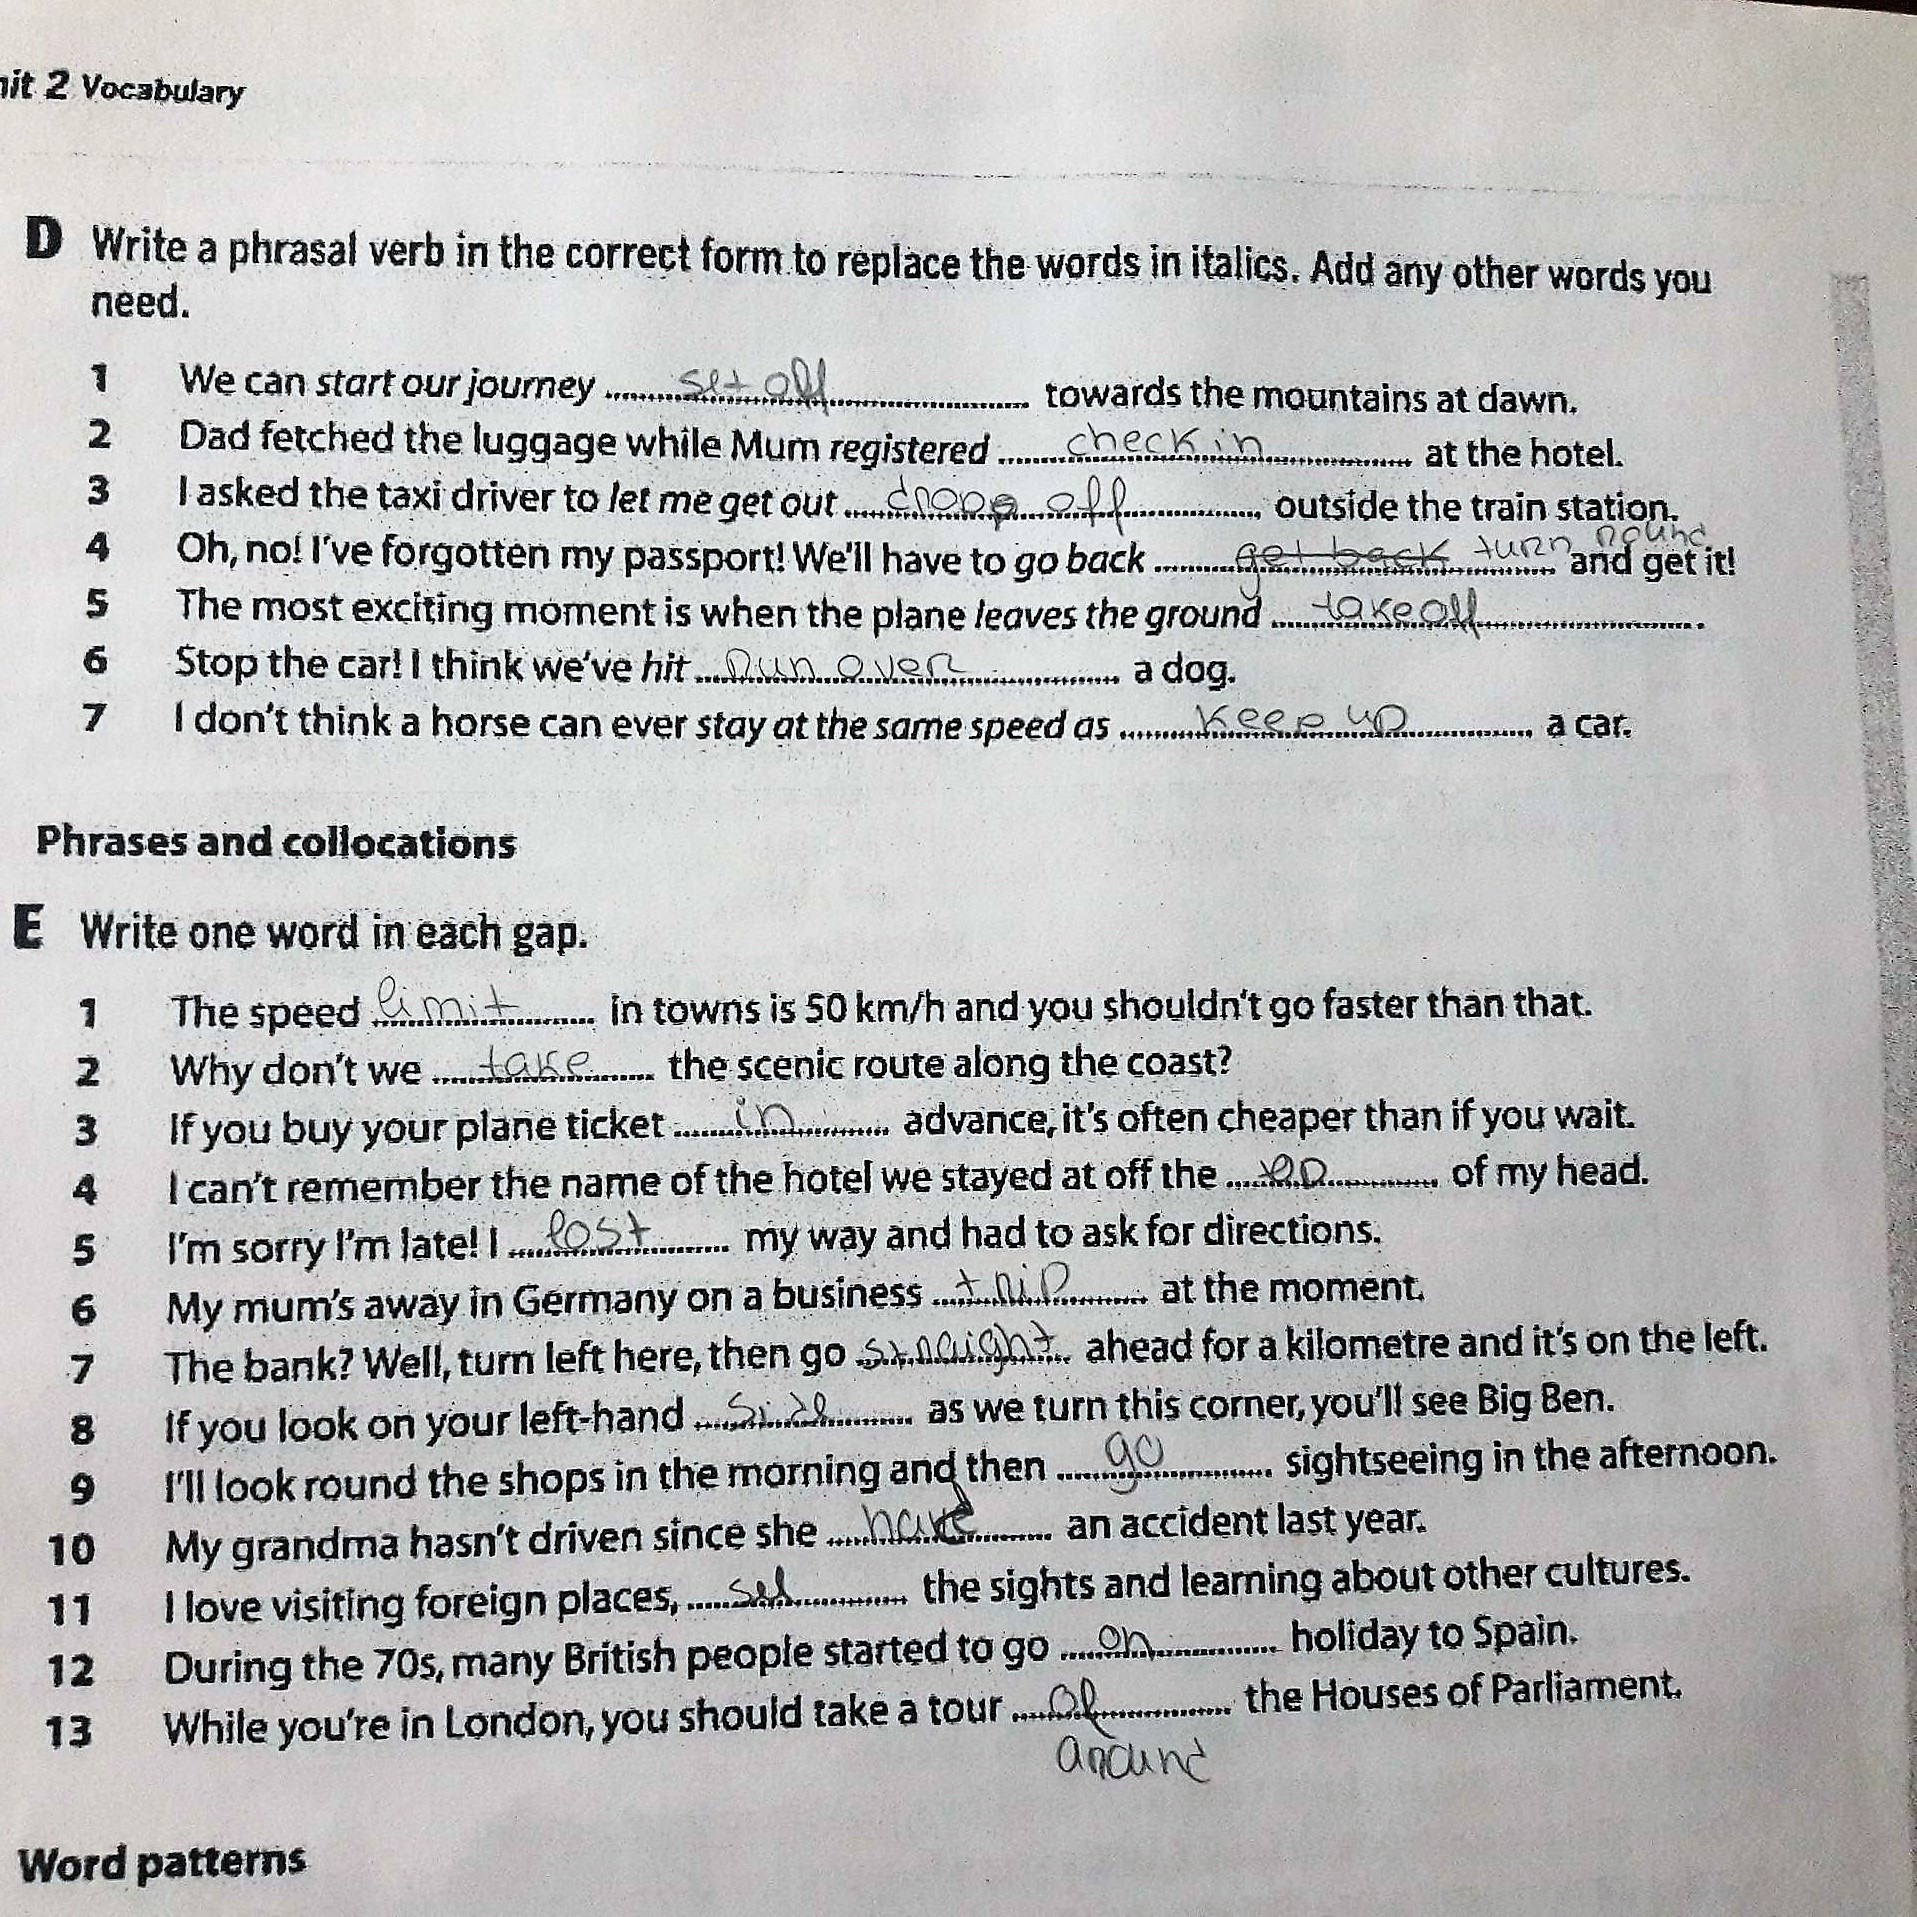 nit 2 Vocabulary
D Write a phrasal verb in the correct form to replace the words in italics. Add any other words you
need.
1 We can start our journey ...... set off ...... towards the mountains at dawn.
2 Dad fetched the luggage while Mum registered ...... check in ...... at the hotel.
3 I asked the taxi driver to let me get out ...... drop off ...... outside the train station.
4 Oh, no! I've forgotten my passport! We'll have to go back ...... get back turn round ...... and get it!
5 The most exciting moment is when the plane leaves the ground ...... take off ...... .
6 Stop the car! I think we've hit ...... run over ...... a dog.
7 I don't think a horse can ever stay at the same speed as ...... keep up ...... a car.
Phrases and collocations
E Write one word in each gap.
1 The speed ...... limit ...... in towns is 50 km/h and you shouldn't go faster than that.
2 Why don't we ...... take ...... the scenic route along the coast?
3 If you buy your plane ticket ...... in ...... advance, it's often cheaper than if you wait.
4 I can't remember the name of the hotel we stayed at off the ...... of my head.
5 I'm sorry I'm late! I ...... lost ...... my way and had to ask for directions.
6 My mum's away in Germany on a business ...... trip ...... at the moment.
7 The bank? Well, turn left here, then go ...... straight ...... ahead for a kilometre and it's on the left.
8 If you look on your left-hand ...... side ...... as we turn this corner, you'll see Big Ben.
9 I'll look round the shops in the morning and then ...... go ...... sightseeing in the afternoon.
10 My grandma hasn't driven since she ...... have ...... an accident last year.
11 I love visiting foreign places, ...... see ...... the sights and learning about other cultures.
12 During the 70s, many British people started to go ...... on ...... holiday to Spain.
13 While you're in London, you should take a tour ...... of ...... the Houses of Parliament.
around
Word patterns